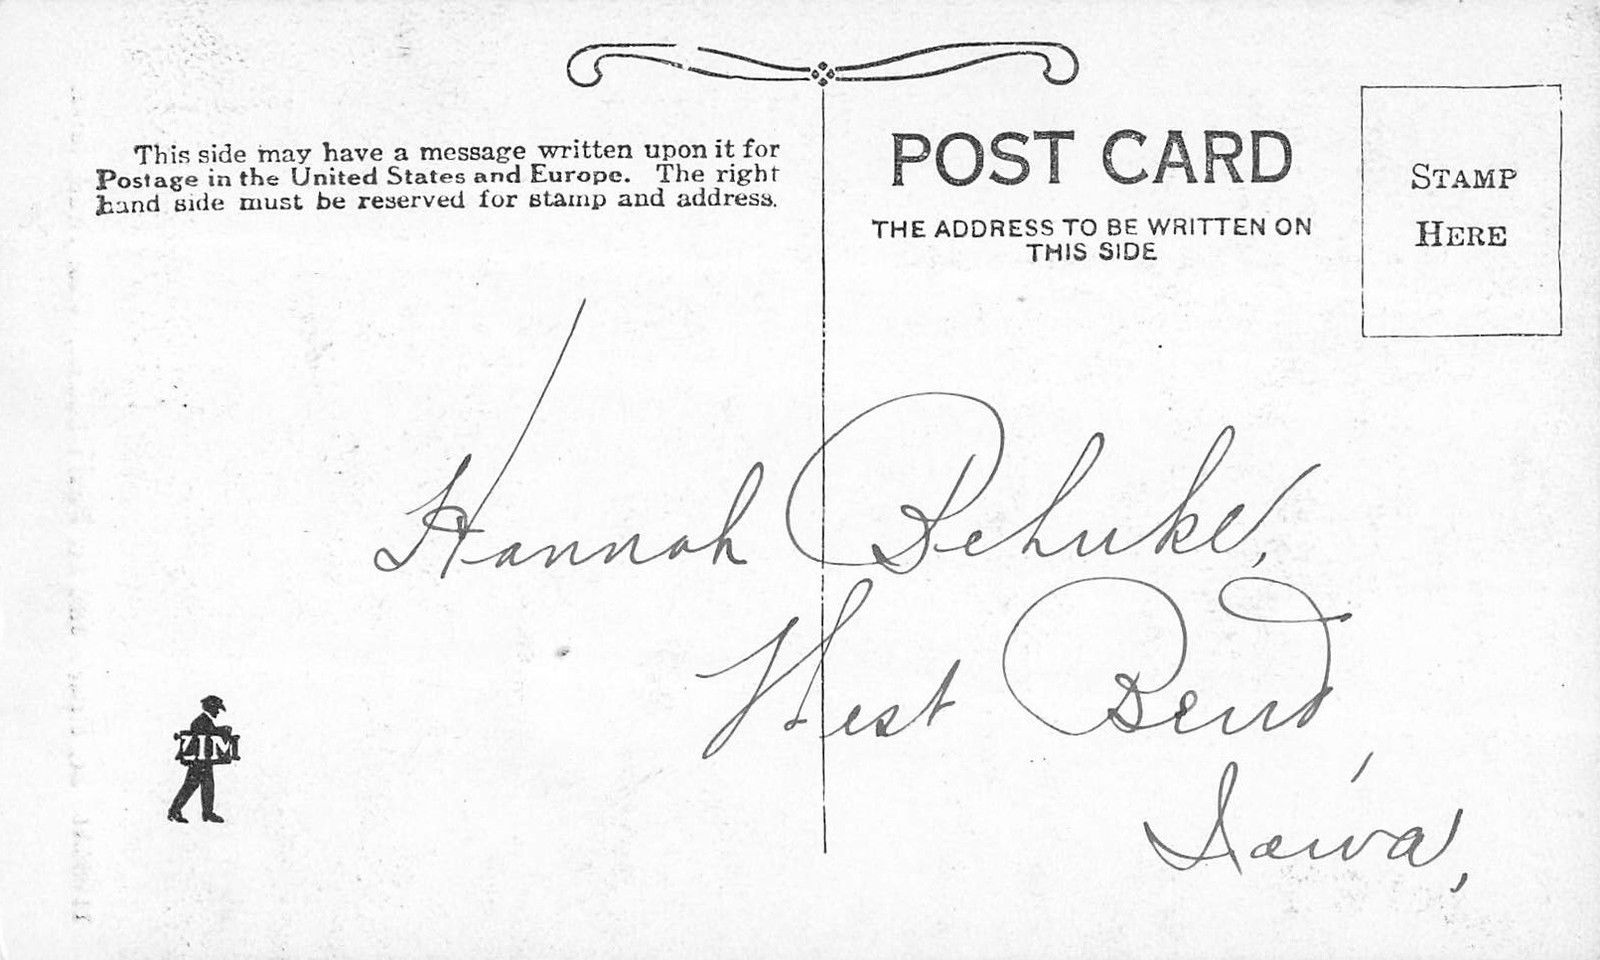 This side may have a message written upon it for
Postage in the United States and Europe. The right
hand side must be reserved for stamp and address.
POST CARD
THE ADDRESS TO BE WRITTEN ON
THIS SIDE
STAMP
HERE
Hannah Behnke,
West Bend,
Iowa,
ZIM